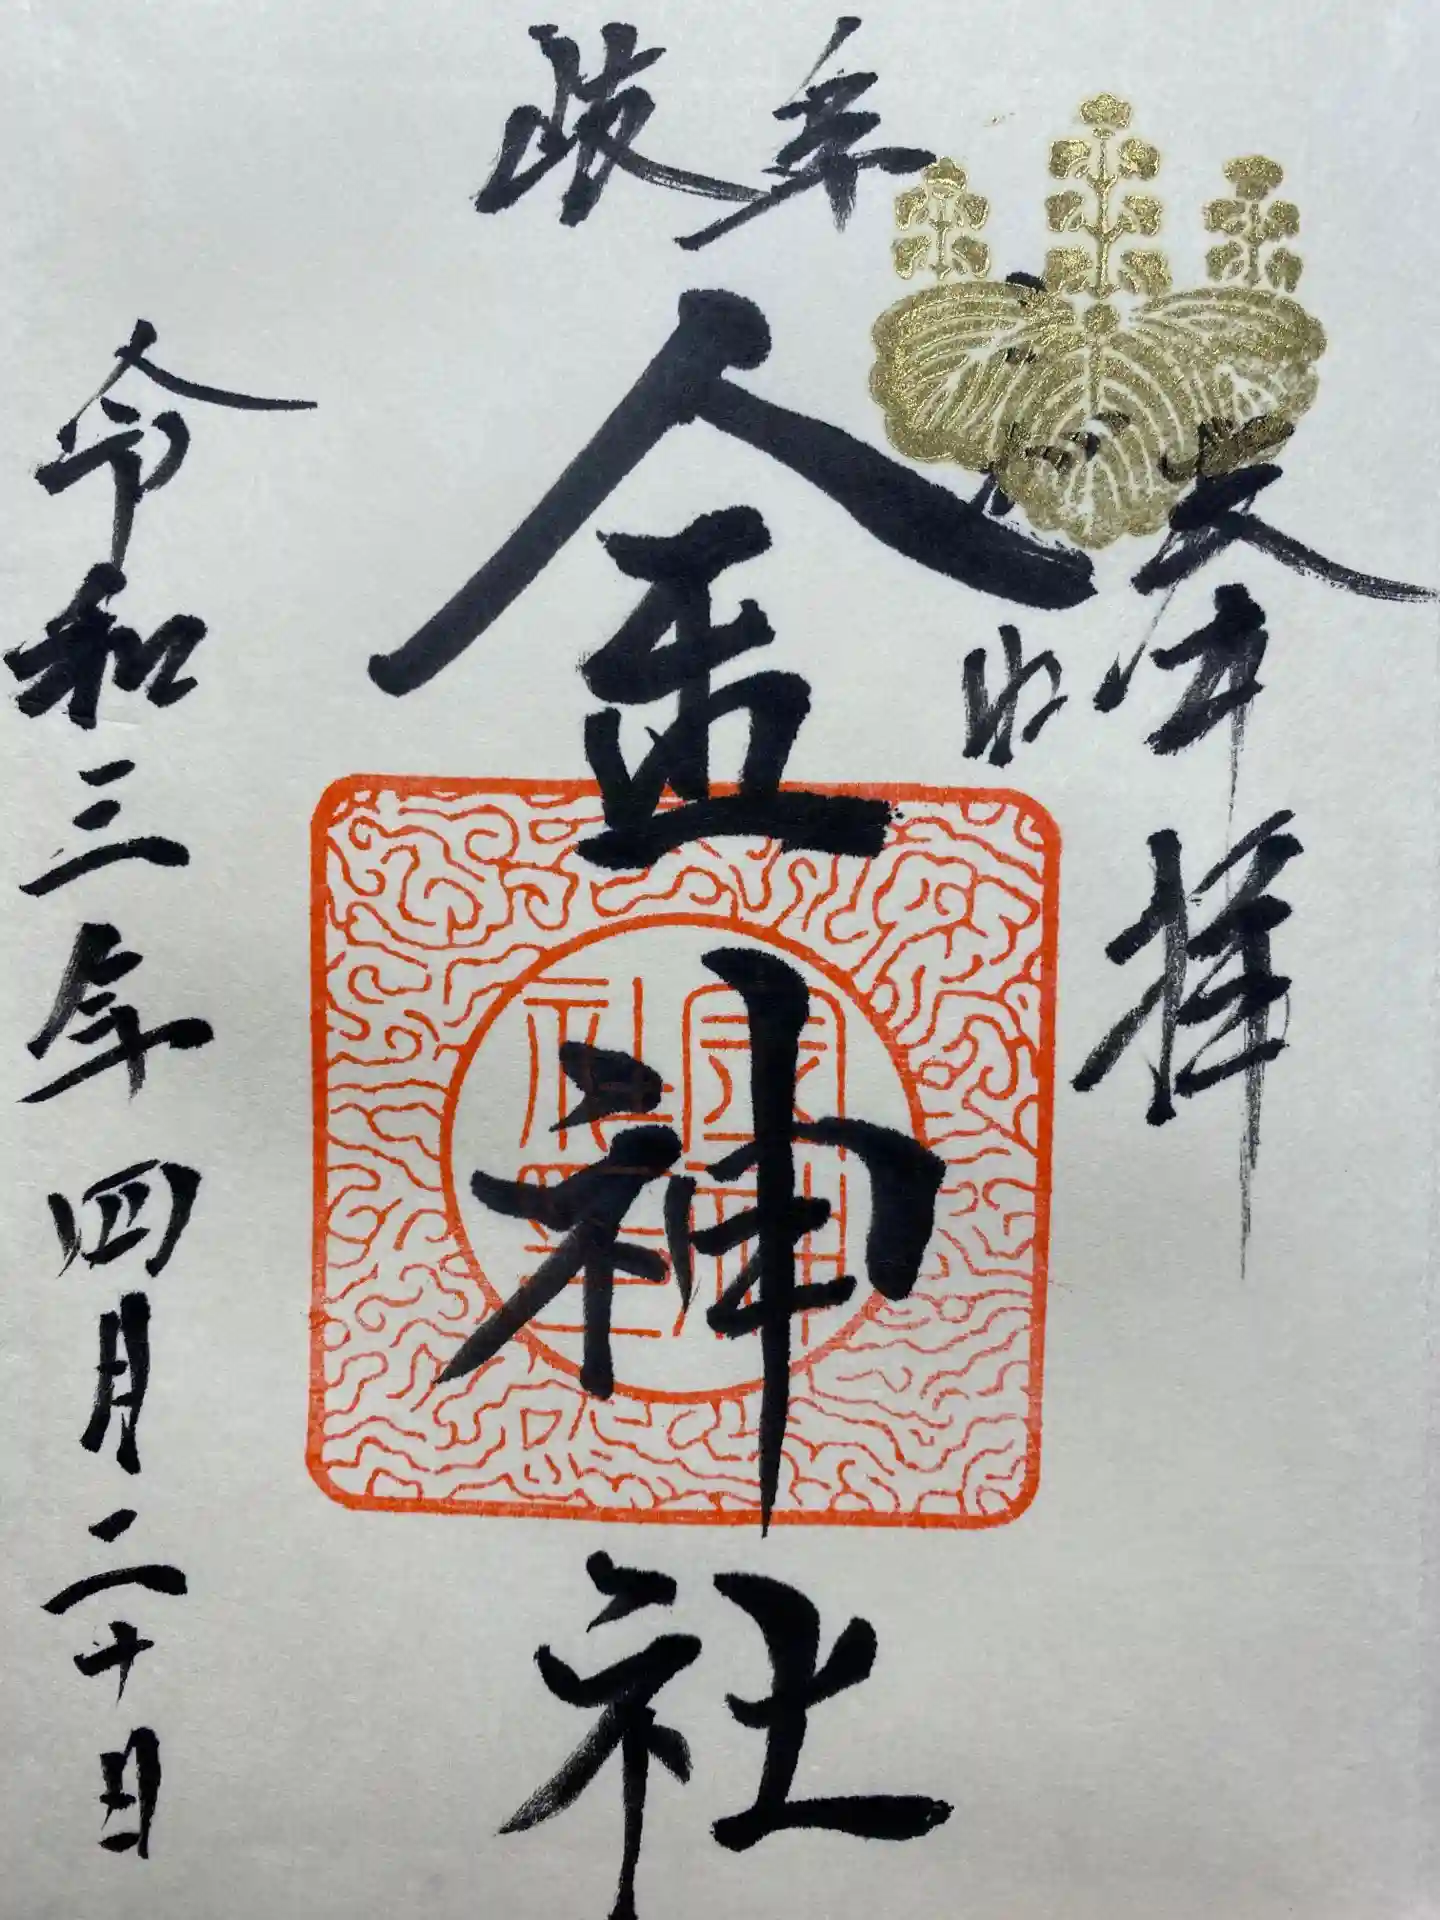 奉拝
岐阜
金神社
令和三年四月二十日